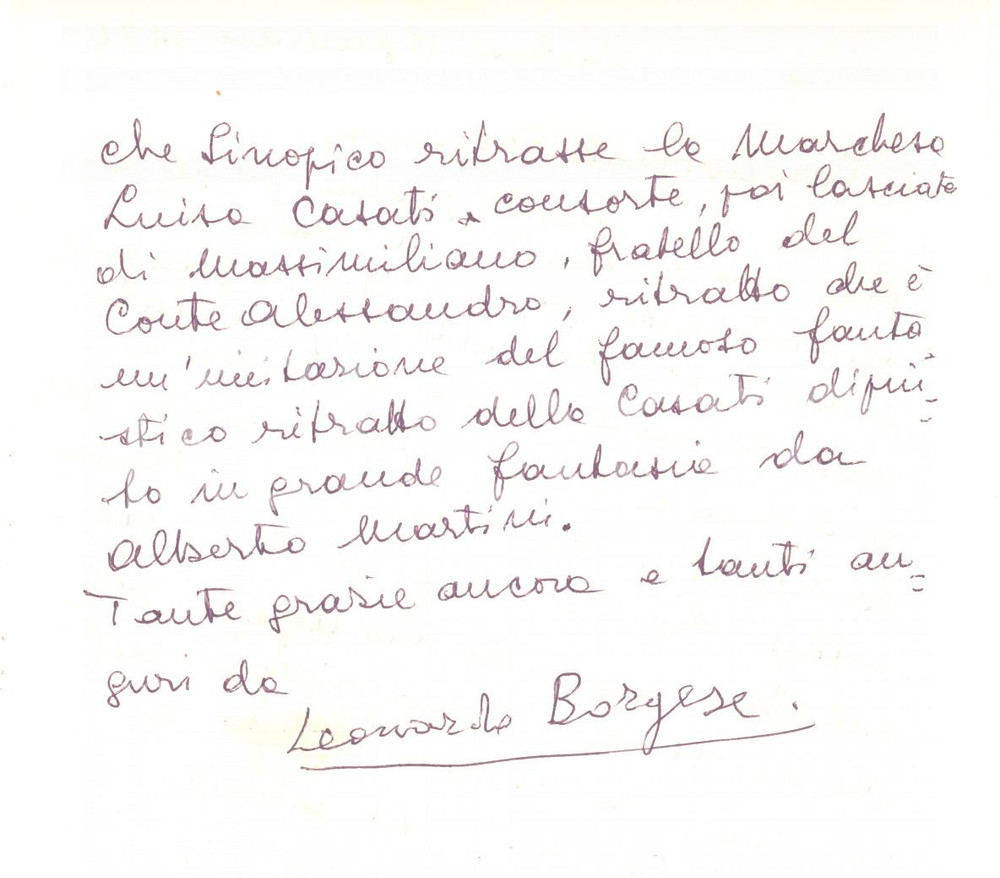 che Sinopico ritrasse la Marchesa
Luisa Casati, consorte, poi lasciata
di Massimiliano, fratello del
Conte Alessandro, ritratto che è
un'imitazione del famoso fanta
stico ritratto della Casati dipin=
to in grande fantasia da
Alberto Martini.
Tante grazie ancora e tanti au=
guri da
Leonardo Borgese.